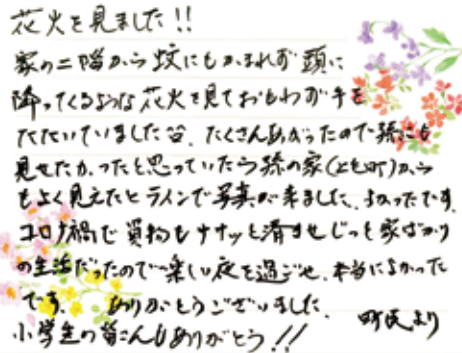 花火を見ました!!
家の二階から蚊にもかまれず頭に
降ってくるような花火を見ておもわず手を
たたいていました。たくさんあがったので孫にも
見せたかったと思っていたら孫の家(とも町)から
もよく見えたとラインで写真が来ました。よかったです。
コロナ禍で買物もササッと済ませじっと家ばかり
の生活だったので楽しい夜を過ごせ、本当によかった
です。ありがとうございました。
小学生の皆さんもありがとう!!
町民より